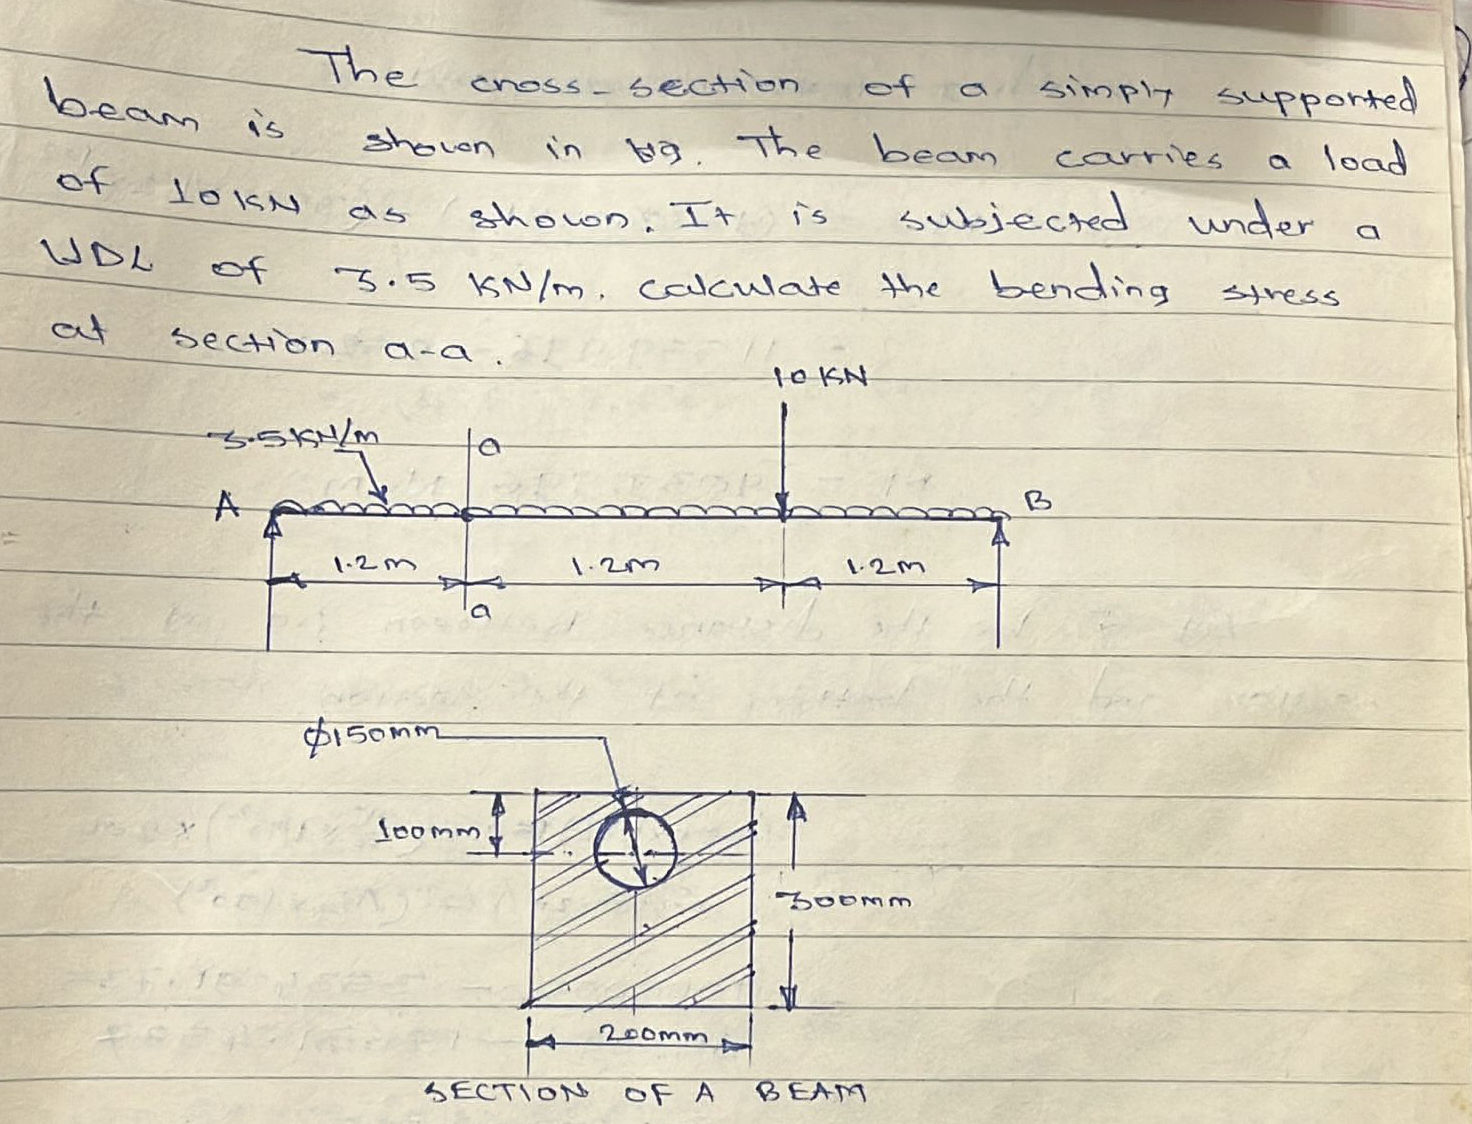 The cross-section of a simply supported
beam is shown in fig. The beam carries a load
of 10 KN as shown. It is subjected under a
UDL of 3.5 KN/m. calculate the bending stress
at section a-a.
10 KN
3.5KN/m
a
A
B
1.2m
1.2m
1.2m
a
ϕ150mm
100mm
300mm
200mm
SECTION OF A BEAM